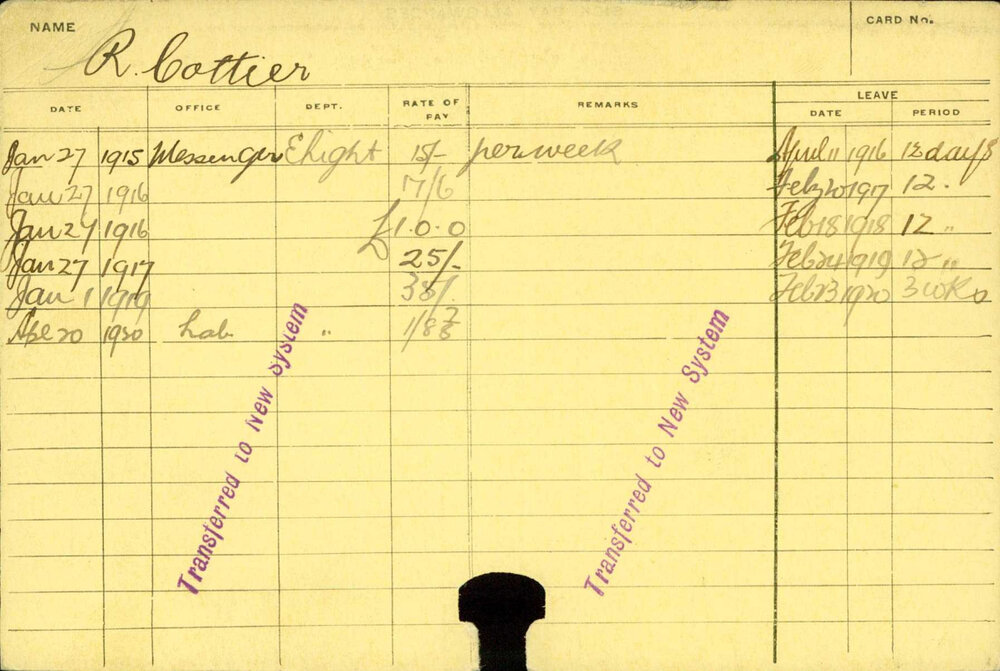 NAME R. Cottier CARD No.
LEAVE
DATE OFFICE DEPT. RATE OF PAY REMARKS DATE PERIOD
Jan 27 1915 Messenger Elight 15/- per week April 11 1916 12 days
Jan 27 1916 17/6 Feb 20 1917 12 "
Jan 27 1916 £1.0.0 Feb 18 1918 12 "
Jan 27 1917 25/- Feb 24 1919 12 "
Jan 1 1919 Feb 23 1920 3 wks
Ap 20 1920 Lab "
Transferred to New System
Transferred to New System